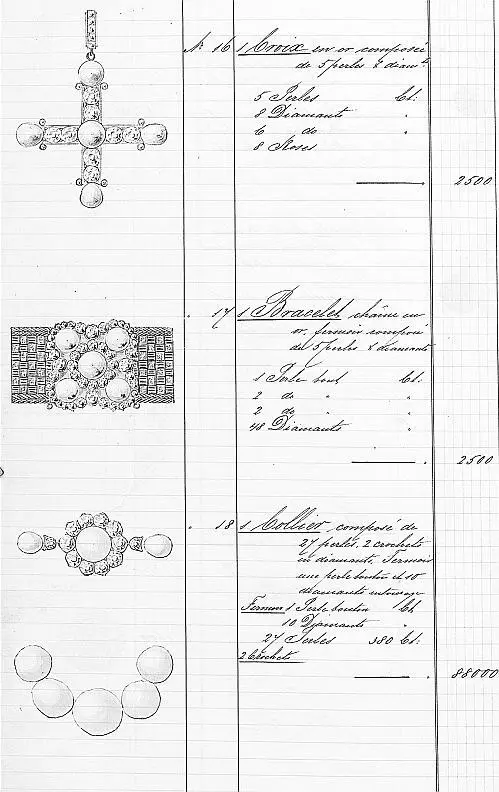 N. 16 1 Croix en or composée
de 5 perles & diamts
5 Perles Ct.
8 Diamants "
6 do "
8 Roses
2500
17 1 Bracelet chaîne en
or, fermoir composé
de 5 perles & diamants
1 Perle bout Ct.
2 do " "
2 do " "
48 Diamants "
2500
18 1 Collier composé de
27 perles, 2 crochets
en diamants, Fermoir
une perle bouton et 10
diamants entourage
Fermoir 1 Perle bouton Ct
10 Diamants "
27 Perles 380 Ct.
2 Crochets
88000